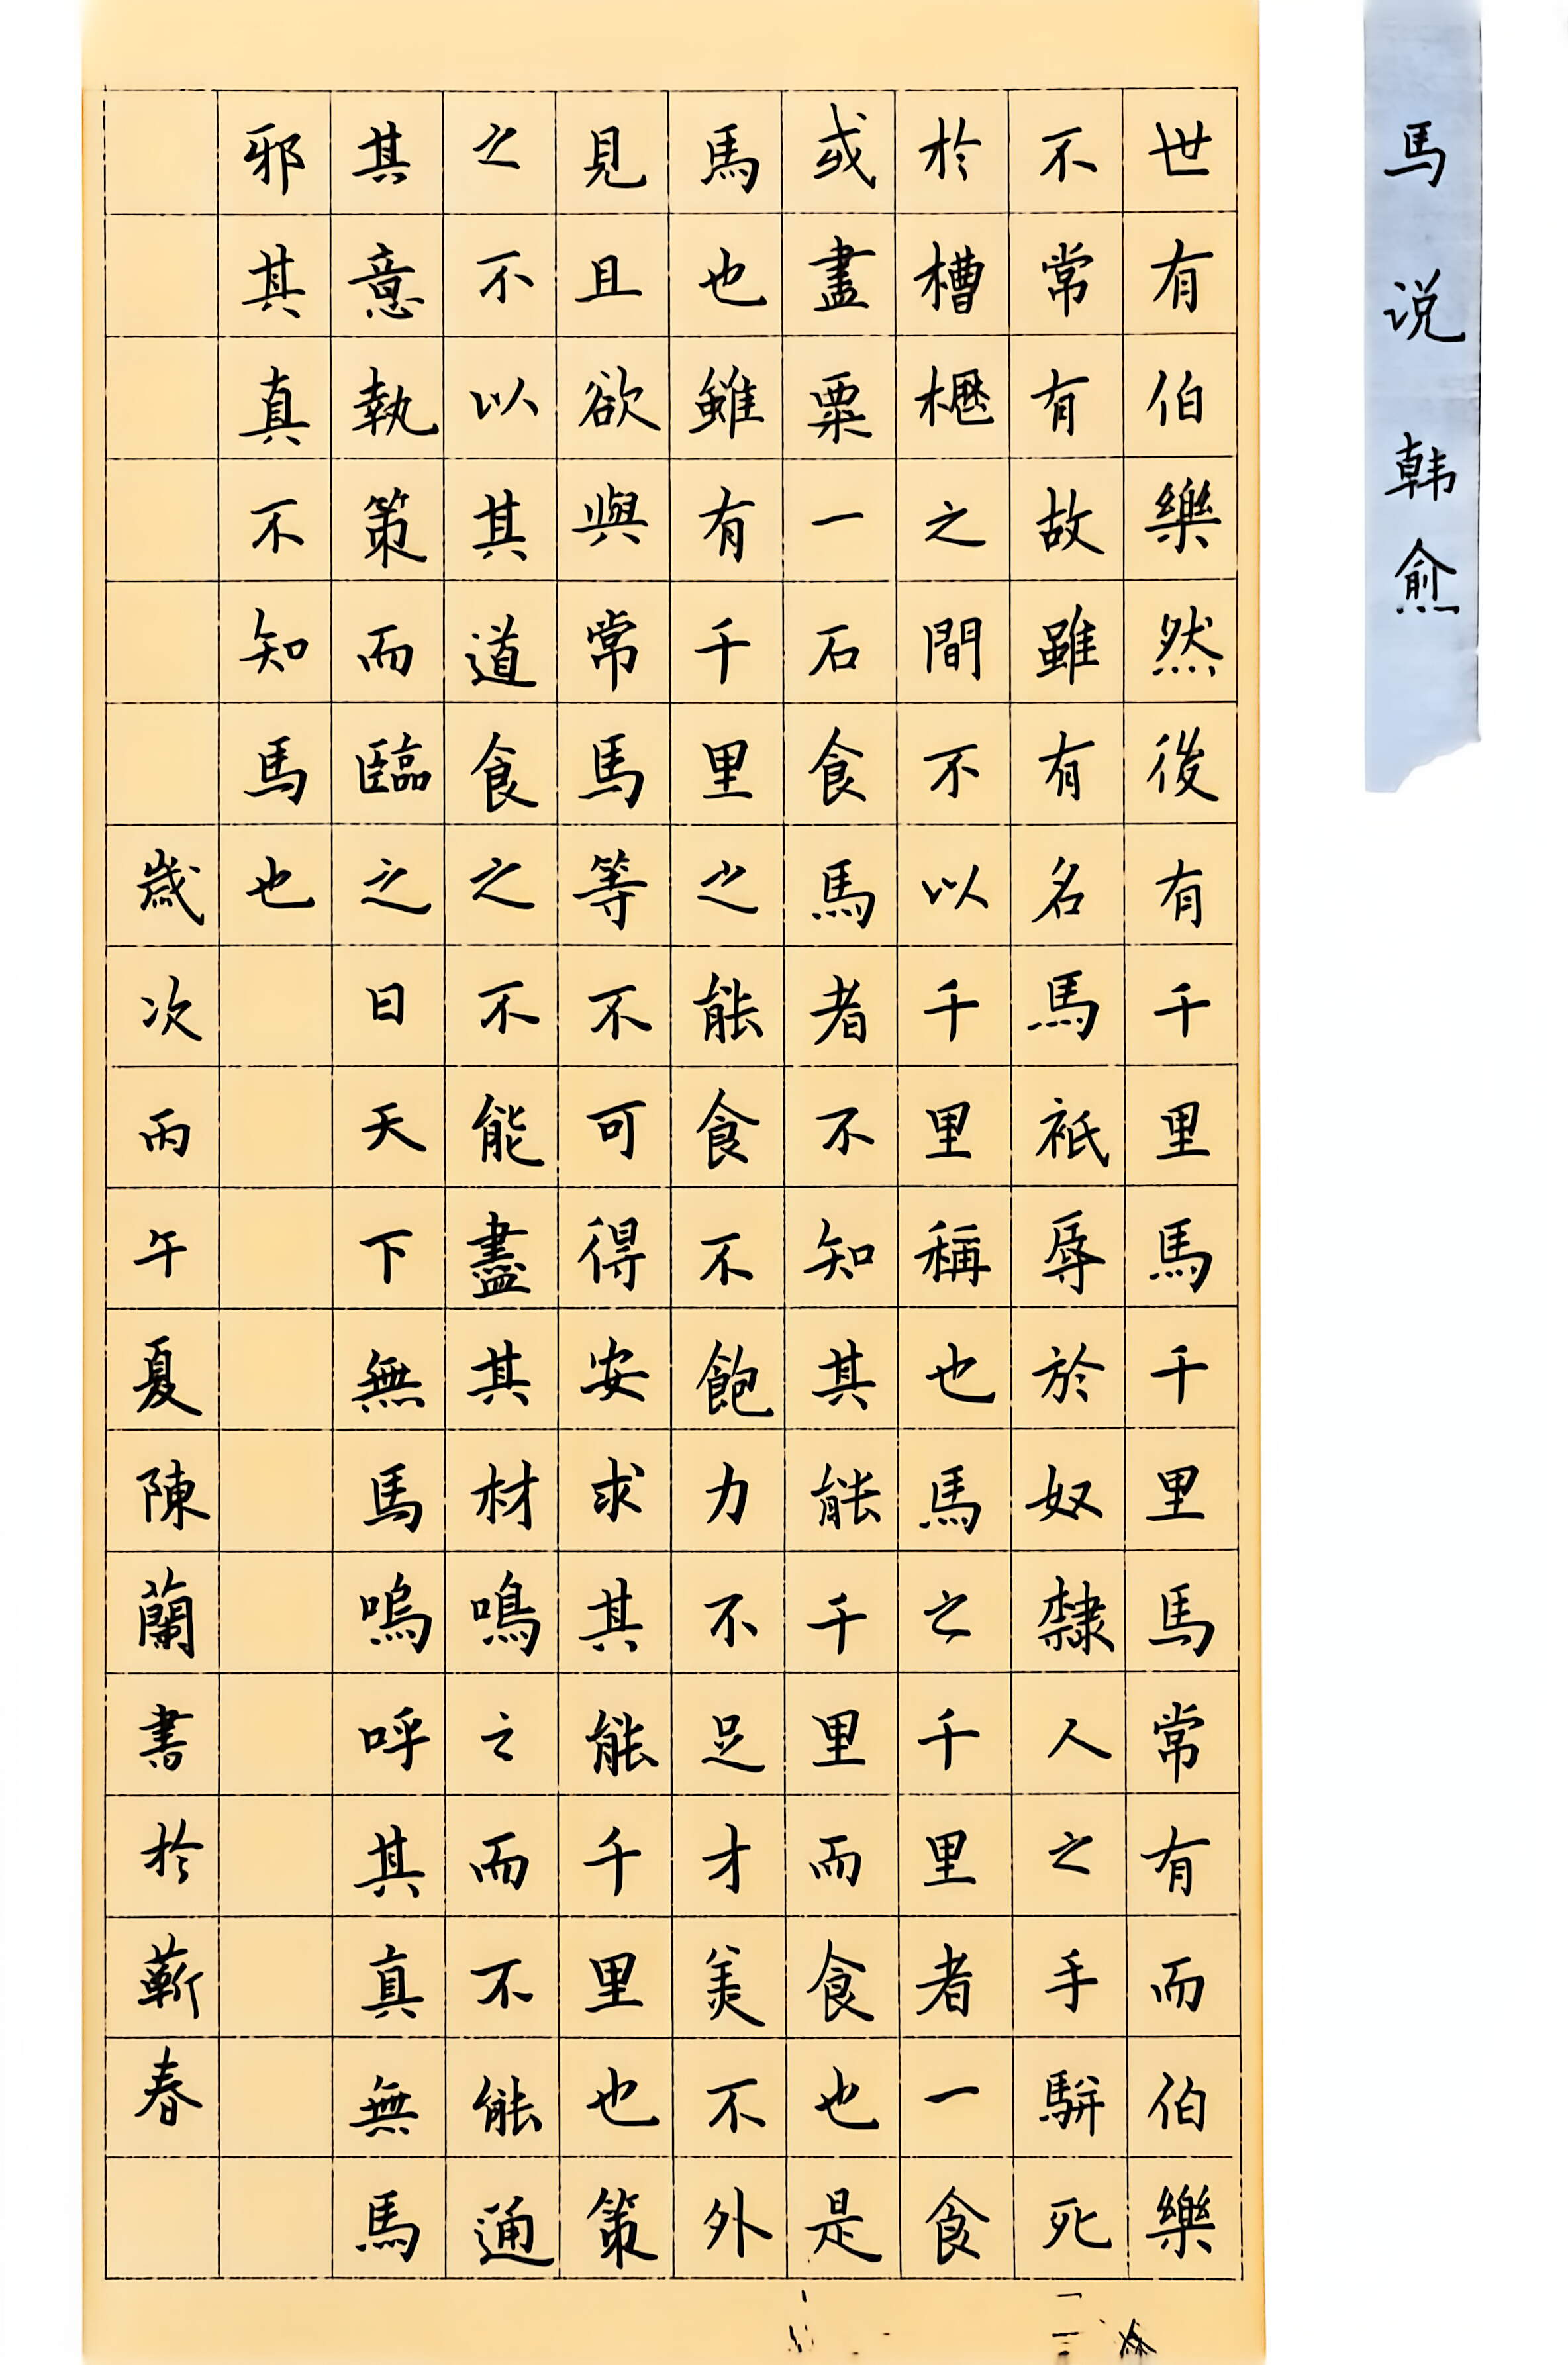 马说 韩愈
世有伯樂然後有千里馬千里馬常有而伯樂
不常有故雖有名馬祇辱於奴隸人之手駢死
於槽櫪之間不以千里稱也馬之千里者一食
或盡粟一石食馬者不知其能千里而食也是
馬也雖有千里之能食不飽力不足才美不外
見且欲與常馬等不可得安求其能千里也策
之不以其道食之不能盡其材鳴之而不能通
其意執策而臨之曰天下無馬嗚呼其真無馬
邪其真不知馬也
歲次丙午夏陳蘭書於蘄春